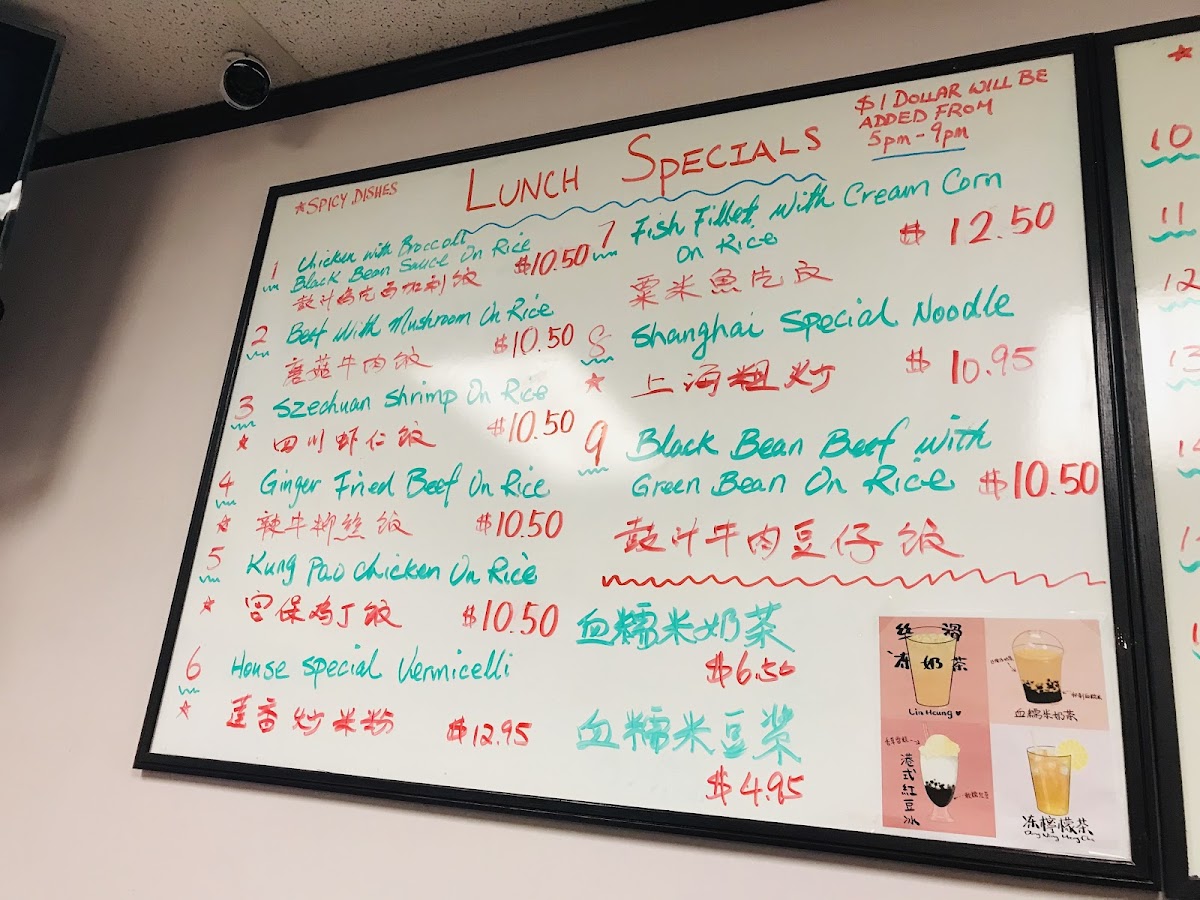 ★SPICY DISHES
LUNCH SPECIALS
$1 DOLLAR WILL BE
ADDED FROM
5pm - 9pm
1 Chicken with Broccoli
Black Bean Sauce On Rice $10.50
豉汁鸡片西加利饭
2 Beef With Mushroom On Rice
蘑菇牛肉饭 $10.50
3 Szechuan Shrimp On Rice
★ 四川虾仁饭 $10.50
4 Ginger Fried Beef On Rice
★ 辣牛柳丝饭 $10.50
5 Kung Pao Chicken On Rice
★ 宫保鸡丁饭 $10.50
6 House Special Vermicelli
★ 莲香炒米粉 $12.95
7 Fish Fillet With Cream Corn
On Rice $12.50
粟米魚片飯
8 Shanghai Special Noodle
★ 上海粗炒 $10.95
9 Black Bean Beef with
Green Bean On Rice $10.50
豉汁牛肉豆仔饭
血糯米奶茶
$6.50
血糯米豆浆
$4.95
丝滑
冻奶茶
Lin Heung ♥
血糯米奶茶
港式紅豆冰
冻檸檬茶
★
10
11
12
13
14